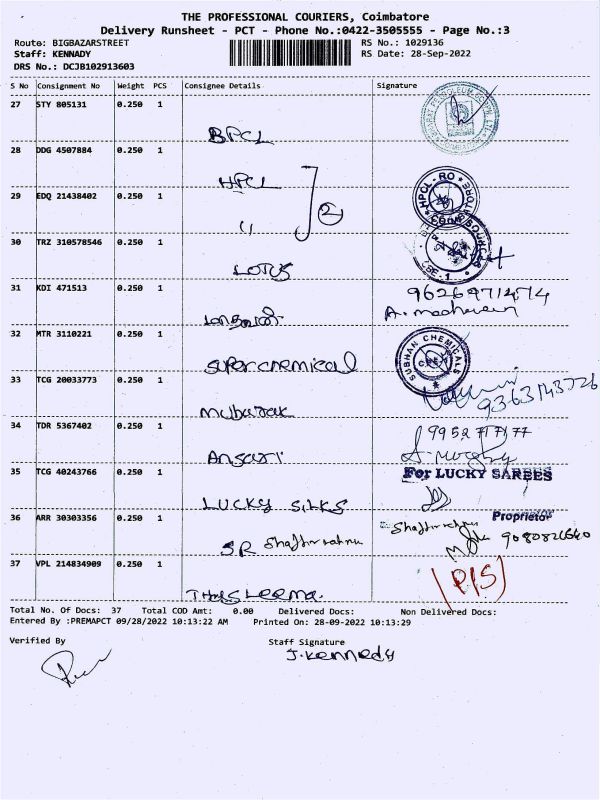 THE PROFESSIONAL COURIERS, Coimbatore
Delivery Runsheet - PCT - Phone No.:0422-3505555 - Page No.:3
Route: BIGBAZARSTREET RS No.: 1029136
Staff: KENNADY RS Date: 28-Sep-2022
DRS No.: DCJB102913603
S No Consignment No Weight PCS Consignee Details Signature
27 STY 805131 0.250 1 BPCL
28 DDG 4507884 0.250 1 HPCL
29 EDQ 21438402 0.250 1 " 2 HPCL-RO
30 TRZ 310578546 0.250 1 LOTUS CBE-1
31 KDI 471513 0.250 1 மாதவன் 9626971474
32 MTR 3110221 0.250 1 Super chemical SUBHAN CHEMICALS CBE-1
33 TCG 20033773 0.250 1 Mubarak 9363143726
34 TDR 5367402 0.250 1 Ansari 9952717177
35 TCG 40243766 0.250 1 LUCKY SILKS For LUCKY SAREES
Proprietor
36 ARR 30303356 0.250 1 SR
37 VPL 214834909 0.250 1 Thasleema. (P/S)
Total No. Of Docs: 37 Total COD Amt: 0.00 Delivered Docs: Non Delivered Docs:
Entered By :PREMAPCT 09/28/2022 10:13:22 AM Printed On: 28-09-2022 10:13:29
Verified By Staff Signature
J. Kennedy